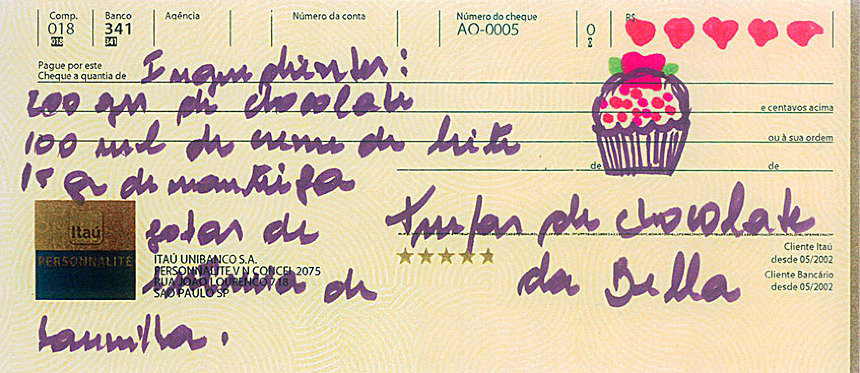 Comp. Banco Agência Número da conta Número do cheque R$
018 341 AO-0005 0
018 341 2
Pague por este
Cheque a quantia de
Ingredientes:
200 gr de chocolate
e centavos acima
100 ml de creme de leite
ou à sua ordem
15 gr de manteiga
de de
Itaú
PERSONNALITÉ
gotas de
Trufas de chocolate
ITAÚ UNIBANCO S.A.
PERSONNALITE V N CONCEI 2075
RUA JOAO LOURENCO 718
SAO PAULO SP
Cliente Itaú
desde 05/2002
Cliente Bancário
desde 05/2002
de
da Bella
baunilha.